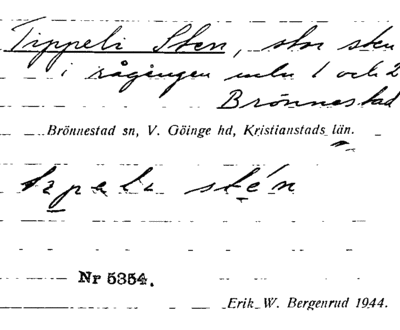 Tippeli Sten, stor sten
i rågången mln 1 och 2
Brönnestad
Brönnestad sn, V. Göinge hd, Kristianstads län.
stén
Nr 5354.
Erik W. Bergenrud 1944.